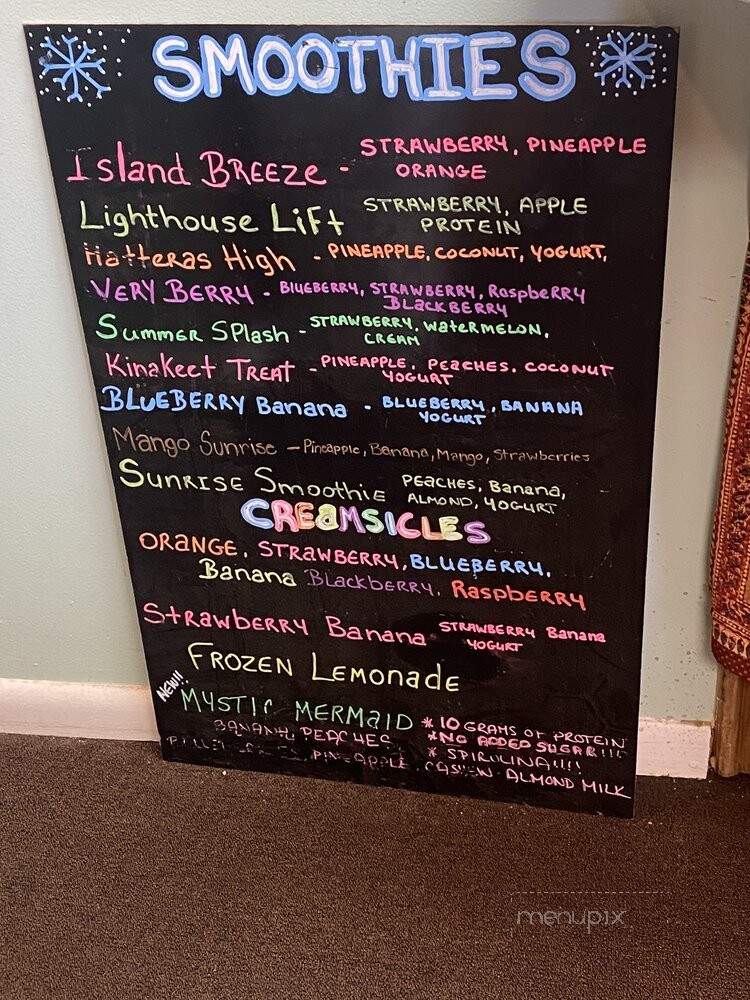 SMOOTHIES
Island BREEZe - STRAWBERRY, PINEAPPLE
ORANGE
Lighthouse LiFt STRAWBERRY, APPLE
PROTEIN
Hatteras High - PINEAPPLE, COCONUT, YOGURT,
VERY BERRY - BlUEBERRY, STRAWBERRY, RaspbeRRY
BLaCKBERRY
Summer SPlash - STRAWBERRY, WateRMELON,
CREAM
KinaKeet TREAT - PINEAPPLE, PEACHES, COCONUT
YOGURT
BLUEBERRY Banana - BLUEBERRY, BANANA
YOGURT
Mango Sunrise - Pineapple, Banana, Mango, Strawberries
SUNRISE Smoothie PEACHES, Banana,
ALMOND, YOGURT
CREaMSICLES
ORANGE, STRAWBERRY, BLUEBERRY,
Banana Blackberry, Raspberry
Strawberry Banana STRAWBERRY Banana
YOGURT
FROZEN LEMONade
NEW!!
MYSTIC MERMaiD * 10 GRAMS OF PROTEIN
BANANA, PEACHES * NO ADDED SUGAR!!!!
* SPIRULINA!!!!
PINEAPPLE, CASHEW ALMOND MILK
menupix